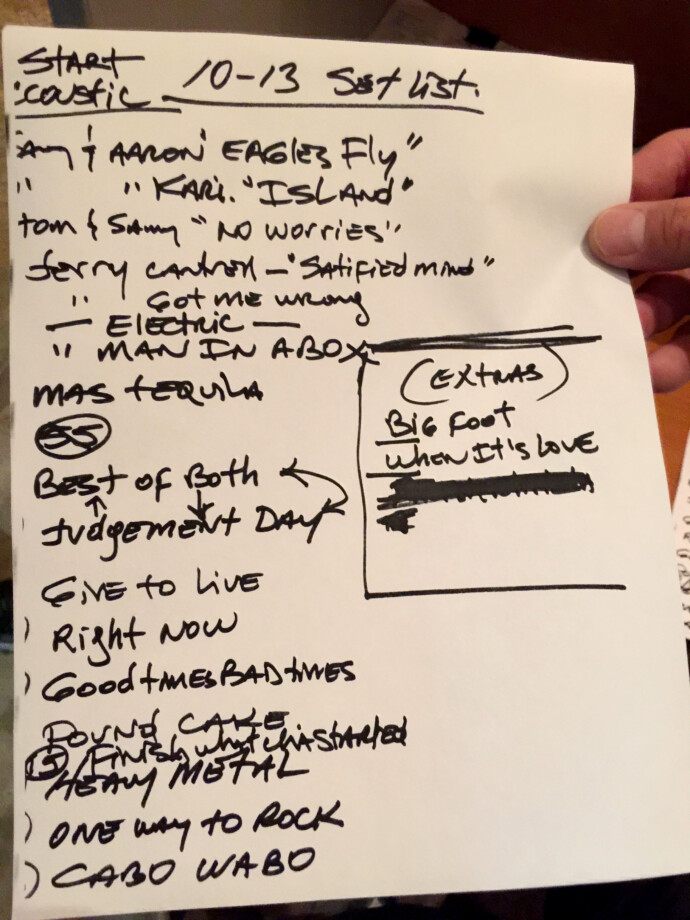 START
coustic
10-13 Set List.
amy & AARON EAGLES Fly"
" " KARI. "ISLAND"
tom & Samy "NO WORRIES"
Jerry Cantrell - "Satified mind"
" Got me wrong
— Electric —
" MAN IN A BOX
MAS tEQUILA
55
Best of Both
Judgement DAY
Give to Live
) Right Now
) Good times BAD times
POUND CAKE
15 / Finish What Ya Started
HEAVY METAL
) ONE WAY to ROCK
) CABO WABO
(EXTRAS)
BIG FOOT
WHEN It's LOVE